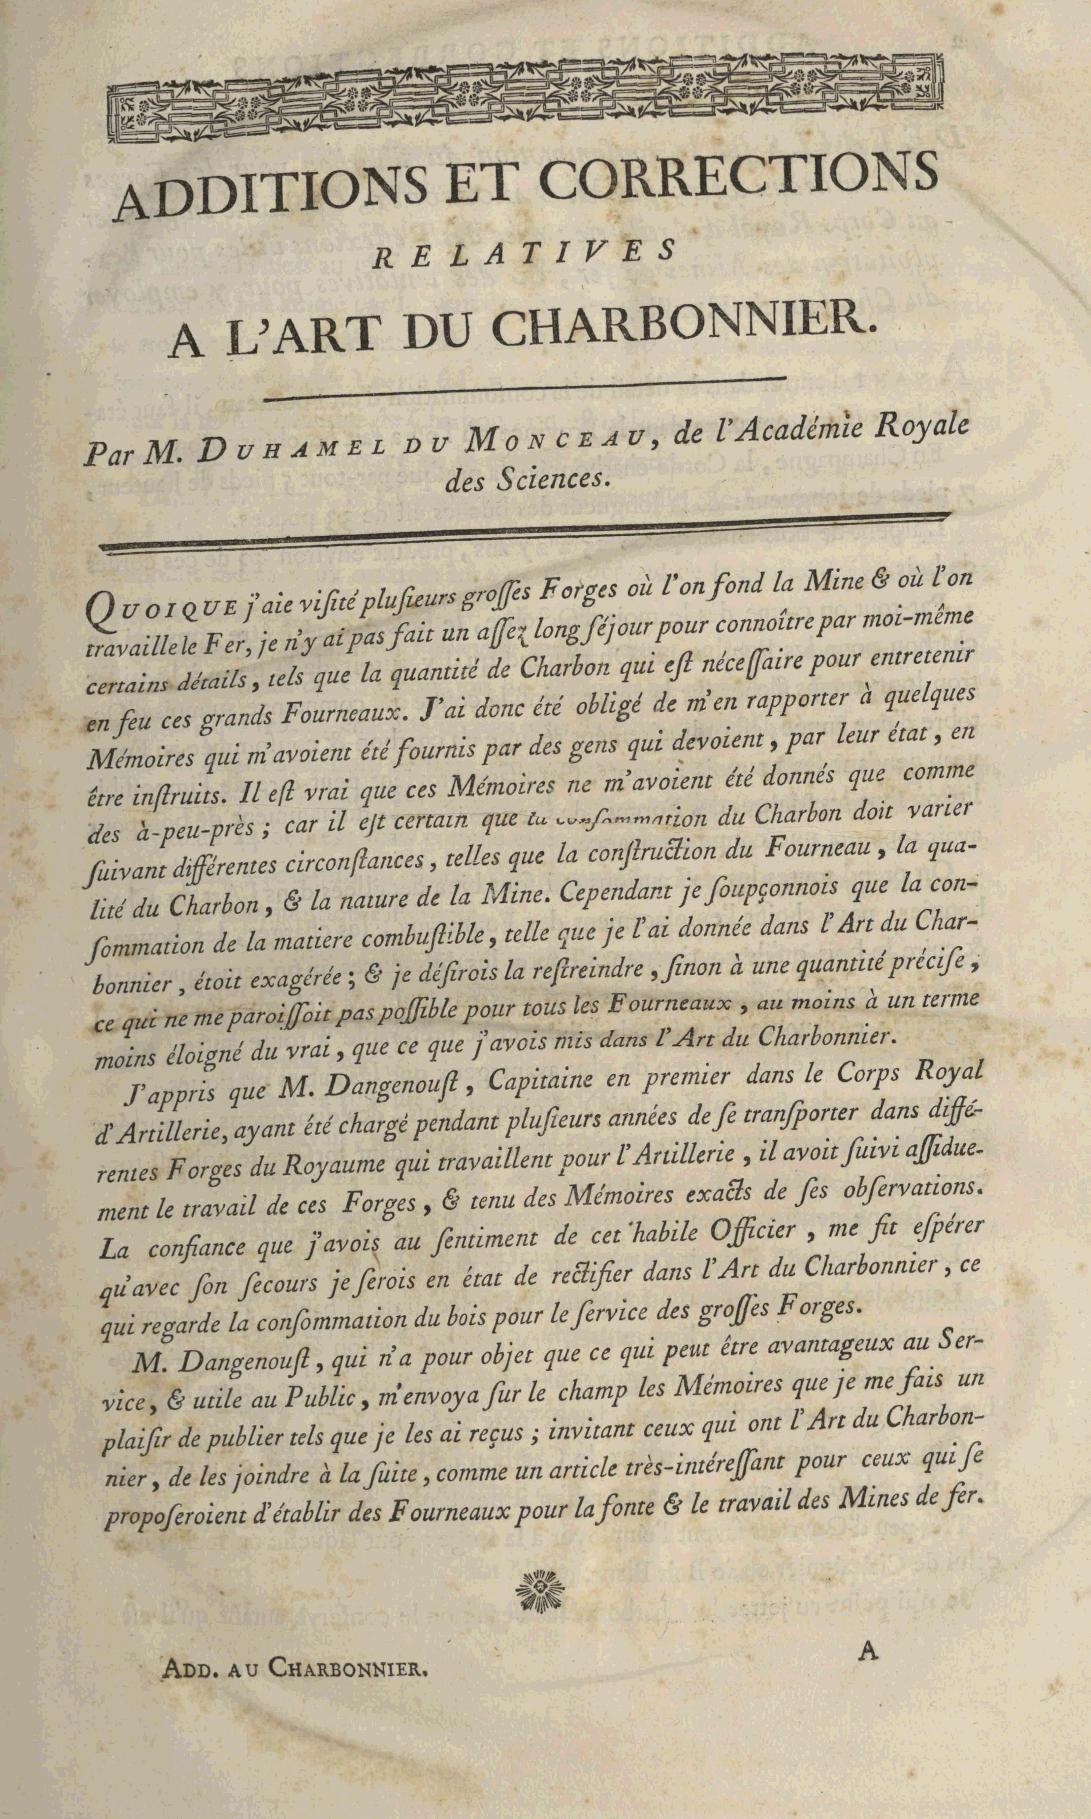 ADDITIONS ET CORRECTIONS
RELATIVES
A L'ART DU CHARBONNIER.
Par M. DUHAMEL DU MONCEAU, de l'Académie Royale
des Sciences.
QUOIQUE j'aie viſité pluſieurs groſſes Forges où l'on fond la Mine & où l'on
travaille le Fer, je n'y ai pas fait un aſſez long ſéjour pour connoître par moi-même
certains détails, tels que la quantité de Charbon qui eſt néceſſaire pour entretenir
en feu ces grands Fourneaux. J'ai donc été obligé de m'en rapporter à quelques
Mémoires qui m'avoient été fournis par des gens qui devoient, par leur état, en
être inſtruits. Il eſt vrai que ces Mémoires ne m'avoient été donnés que comme
des à-peu-près; car il eſt certain que la conſommation du Charbon doit varier
ſuivant différentes circonſtances, telles que la conſtruction du Fourneau, la qua-
lité du Charbon, & la nature de la Mine. Cependant je ſoupçonnois que la con-
ſommation de la matiere combuſtible, telle que je l'ai donnée dans l'Art du Char-
bonnier, étoit exagérée; & je déſirois la reſtreindre, ſinon à une quantité préciſe,
ce qui ne me paroiſſoit pas poſſible pour tous les Fourneaux, au moins à un terme
moins éloigné du vrai, que ce que j'avois mis dans l'Art du Charbonnier.
J'appris que M. Dangenouſt, Capitaine en premier dans le Corps Royal
d'Artillerie, ayant été chargé pendant pluſieurs années de ſe tranſporter dans diffé-
rentes Forges du Royaume qui travaillent pour l'Artillerie, il avoit ſuivi aſſidue-
ment le travail de ces Forges, & tenu des Mémoires exacts de ſes obſervations.
La confiance que j'avois au ſentiment de cet habile Officier, me fit eſpérer
qu'avec ſon ſecours je ſerois en état de rectifier dans l'Art du Charbonnier, ce
qui regarde la conſommation du bois pour le ſervice des groſſes Forges.
M. Dangenouſt, qui n'a pour objet que ce qui peut être avantageux au Ser-
vice, & utile au Public, m'envoya ſur le champ les Mémoires que je me fais un
plaiſir de publier tels que je les ai reçus; invitant ceux qui ont l'Art du Charbon-
nier, de les joindre à la ſuite, comme un article très-intéreſſant pour ceux qui ſe
propoſeroient d'établir des Fourneaux pour la fonte & le travail des Mines de fer.
ADD. AU CHARBONNIER.
A